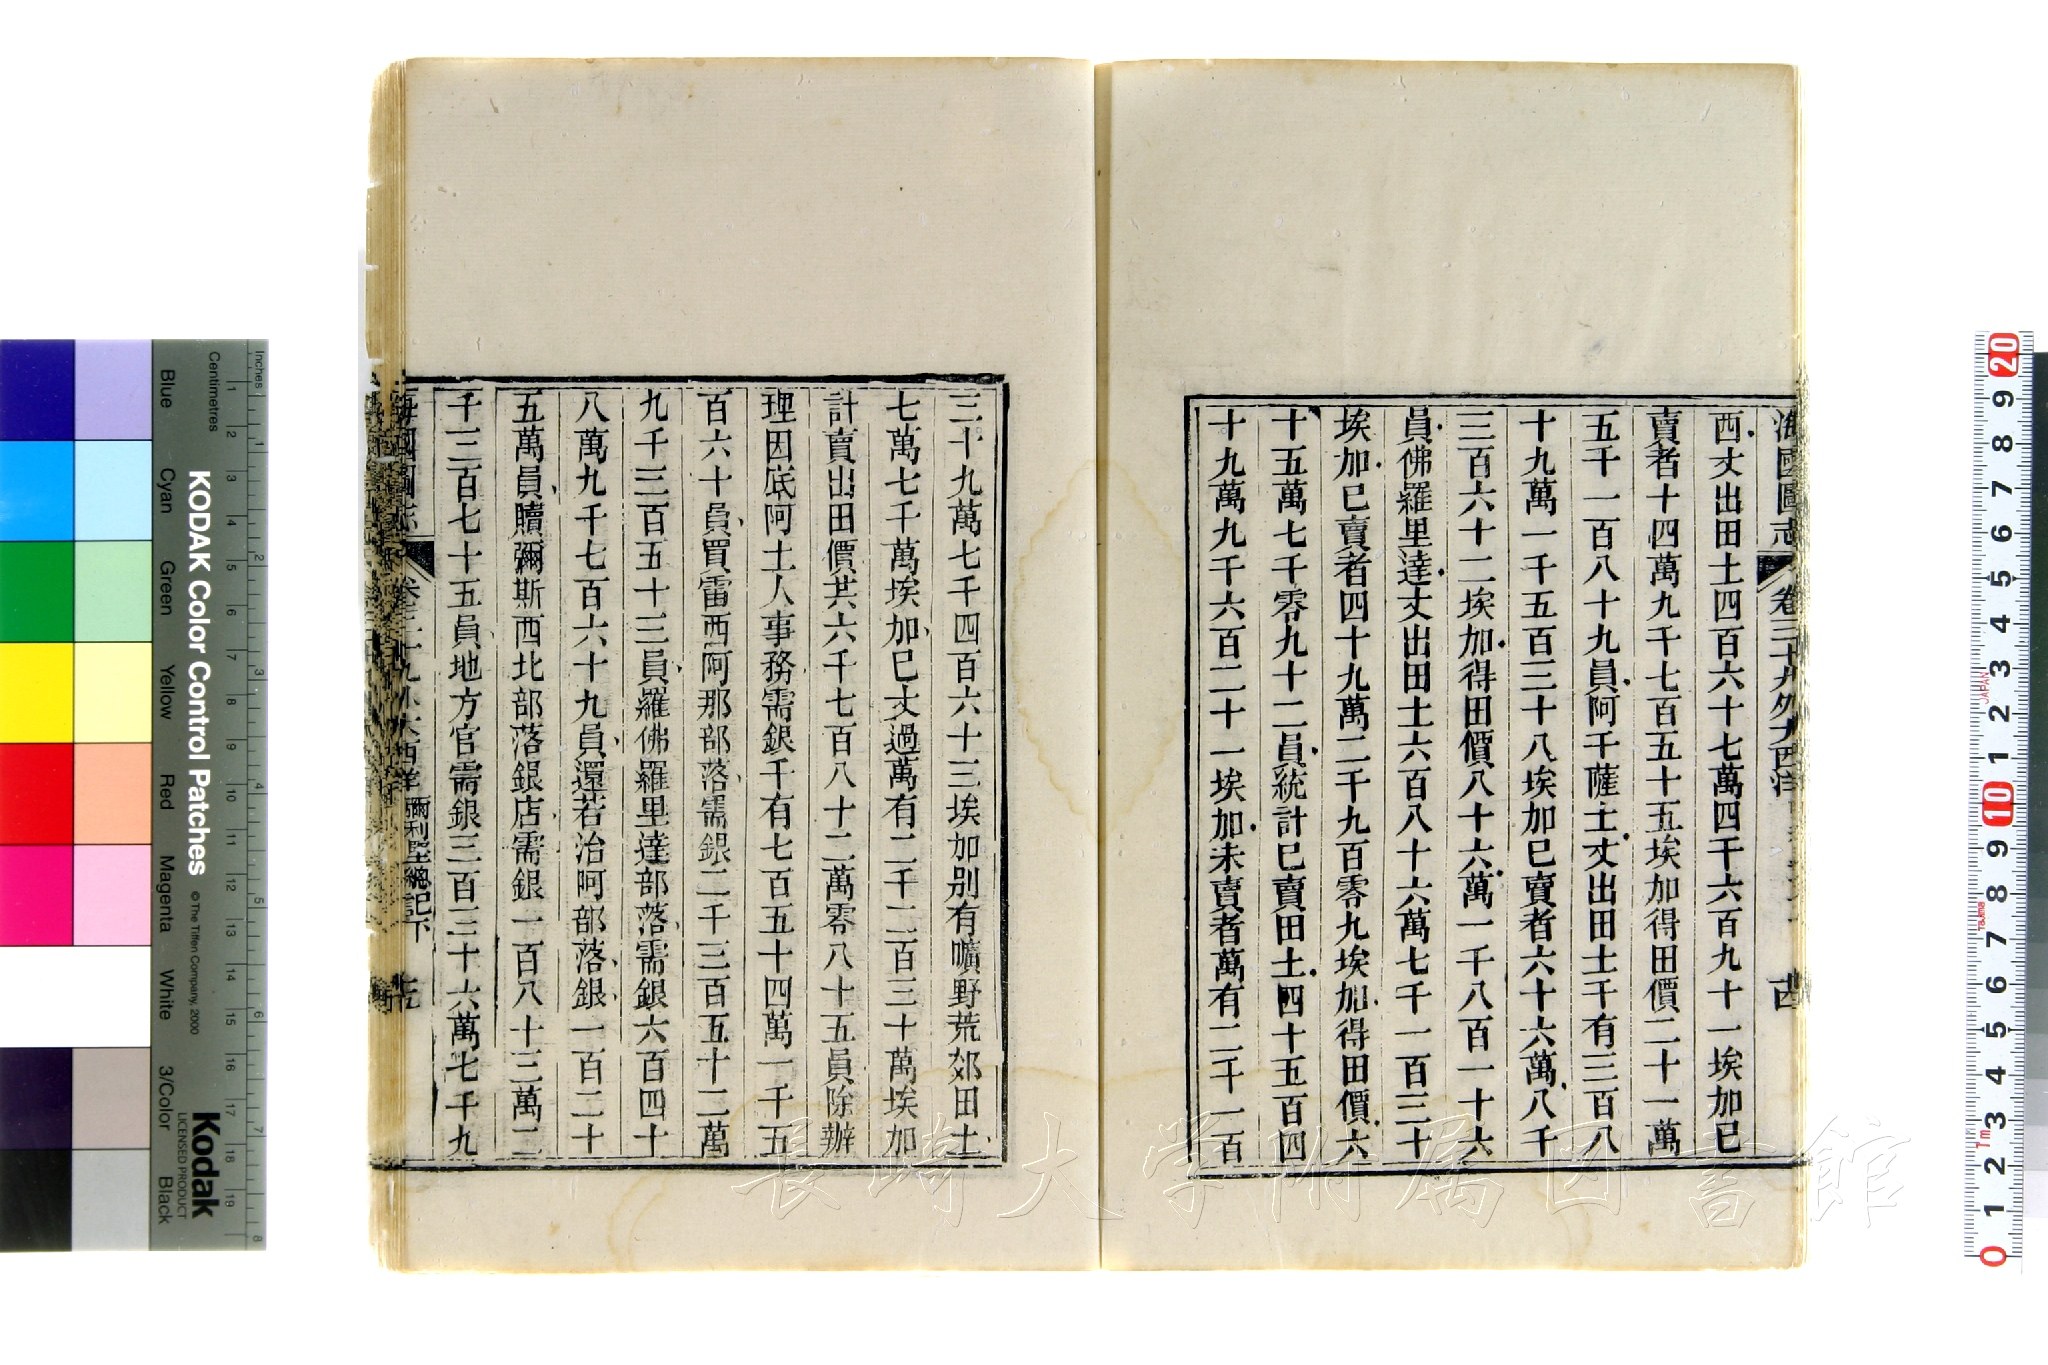 海國圖志 卷三十九外大西洋
西丈出田土四百六十七萬四千六百九十一埃加巳
賣者十四萬九千七百五十五埃加得田價二十一萬
五千一百八十九員阿千薩土丈出田土千有三百八
十九萬一千五百三十八埃加巳賣者六十六萬八千
三百六十二埃加得田價八十六萬一千八百一十六
員佛羅里達丈出田土六百八十六萬七千一百三十
埃加巳賣者四十九萬二千九百零九埃加得田價六
十五萬七千零九十二員統計巳賣田土四十五百四
十九萬九千六百二十一埃加未賣者萬有二千一百
三十九萬七千四百六十三埃加別有曠野荒郊田土
七萬七千萬埃加巳丈過萬有二千二百三十萬埃加
計賣出田價共六千七百八十二萬零八十五員除辦
理因底阿土人事務需銀千有七百五十四萬一千五
百六十員買雷西阿那部落需銀二千三百五十二萬
九千三百五十三員羅佛羅里達部落需銀六百四十
八萬九千七百六十九員還若治阿部落銀一百二十
五萬員贖彌斯西北部落銀店需銀一百八十三萬二
千三百七十五員地方官需銀三百三十六萬七千九
海國圖志 卷三十九外大西洋 彌利堅總記下
KODAK Color Control Patches © The Tiffen Company, 2000
Kodak
LICENSED PRODUCT
Inches
Centimetres
1 2 3 4 5 6 7 8 9 10 11 12 13 14 15 16 17 18 19
1 2 3 4 5 6 7 8
Blue Cyan Green Yellow Red Magenta White 3/Color Black
20 9 8 7 6 5 4 3 2 1 10 9 8 7 6 5 4 3 2 1 0
JAPAN
Tajima
長崎大学附属図書館